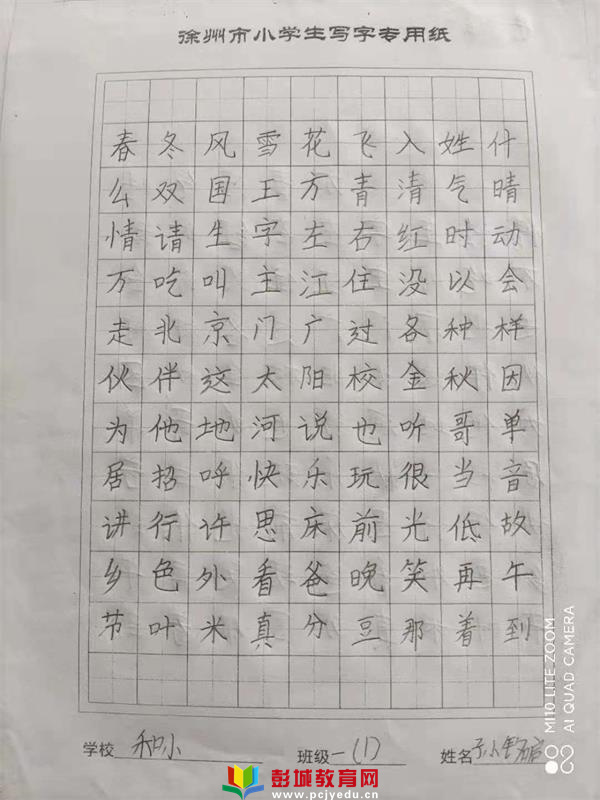 徐州市小学生写字专用纸
春冬风雪花飞入姓什
么双国王方青清气晴
情请生字左右红时动
万吃叫主江住没以会
走北京门广过各种样
伙伴这太阳校金秋因
为他地河说也听哥单
居招呼快乐玩很当音
讲行许思床前光低故
乡色外看爸晚笑再午
节叶米真分豆那着到
学校 和小 班级 一(1) 姓名
MI 10 LITE ZOOM
AI QUAD CAMERA
彭城教育网
www.pcjyedu.cn